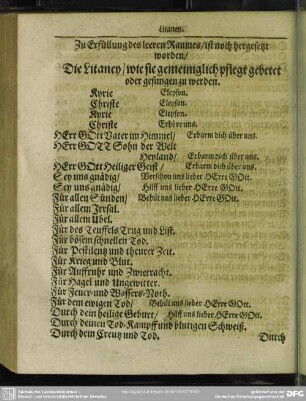 Litaney.
Zu Erfüllung des leeren Raumes/ ist noch hergesetzt
worden/
Die Litaney/ wie sie gemeiniglich pflegt gebetet
oder gesungen zu werden.
Kyrie Eleyson.
Christe Eleyson.
Kyrie Eleyson.
Christe Erhöre uns.
HErr GOtt Vater im Himmel/ Erbarm dich über uns.
HErr GOTT Sohn der Welt
Heyland/ Erbarm dich über uns.
HErr GOtt Heiliger Geist/ Erbarm dich über uns.
Sey uns gnädig/ Verschon uns lieber HErre GOtt.
Sey uns gnädig/ Hilff uns lieber HErre GOtt.
Für allen Sünden/ Behüt uns lieber HErre GOtt.
Für allem Irrsal.
Für allem Übel.
Für des Teuffels Trug und List.
Für bösem schnellen Tod.
Für Pestilentz und theurer Zeit.
Für Krieg und Blut.
Für Auffruhr und Zwietracht.
Für Hagel und Ungewitter.
Für Feuer- und Wassers-Noth.
Für dem ewigen Tod/ Behüt uns lieber HErre GOtt.
Durch dein heilige Geburt/ Hilff uns lieber HErre GOtt.
Durch deinen Tod-Kampff und blutigen Schweiß.
Durch dein Creutz und Tod.
Durch